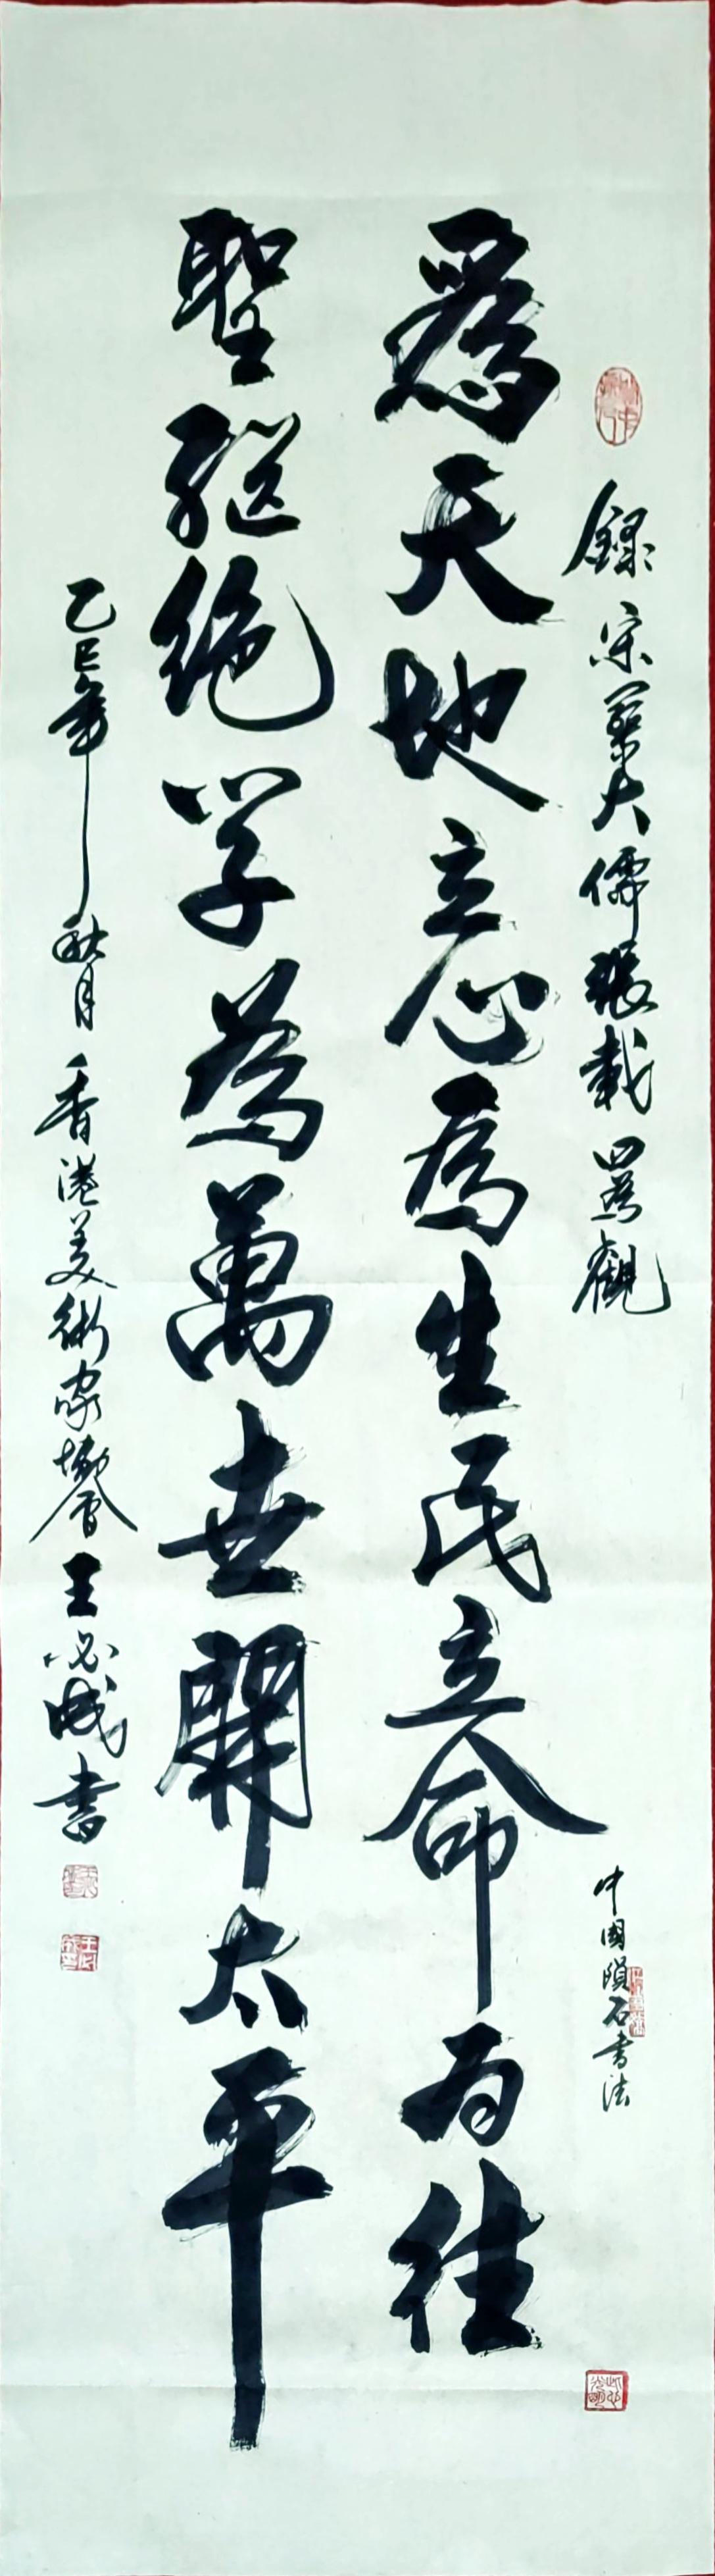 錄宋業大儒張載四爲觀
爲天地立心爲生民立命为往
聖继絶学為萬世開太平
乙巳年秋月香港美術家協會王必成書
中國隕石書法